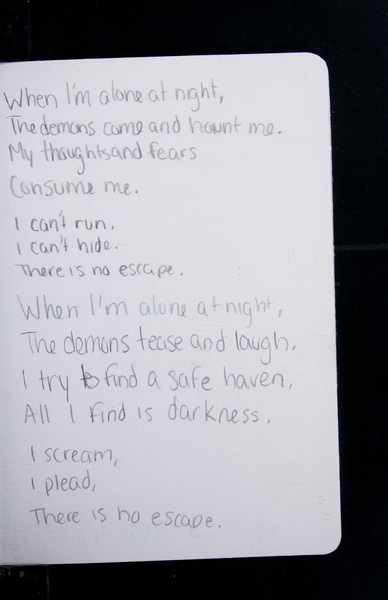 When I'm alone at night,
The demons come and haunt me.
My thoughts and fears
Consume me.
I can't run.
I can't hide.
There is no escape.
When I'm alone at night,
The demons tease and laugh.
I try to find a safe haven,
All I find is darkness.
I scream,
I plead,
There is no escape.